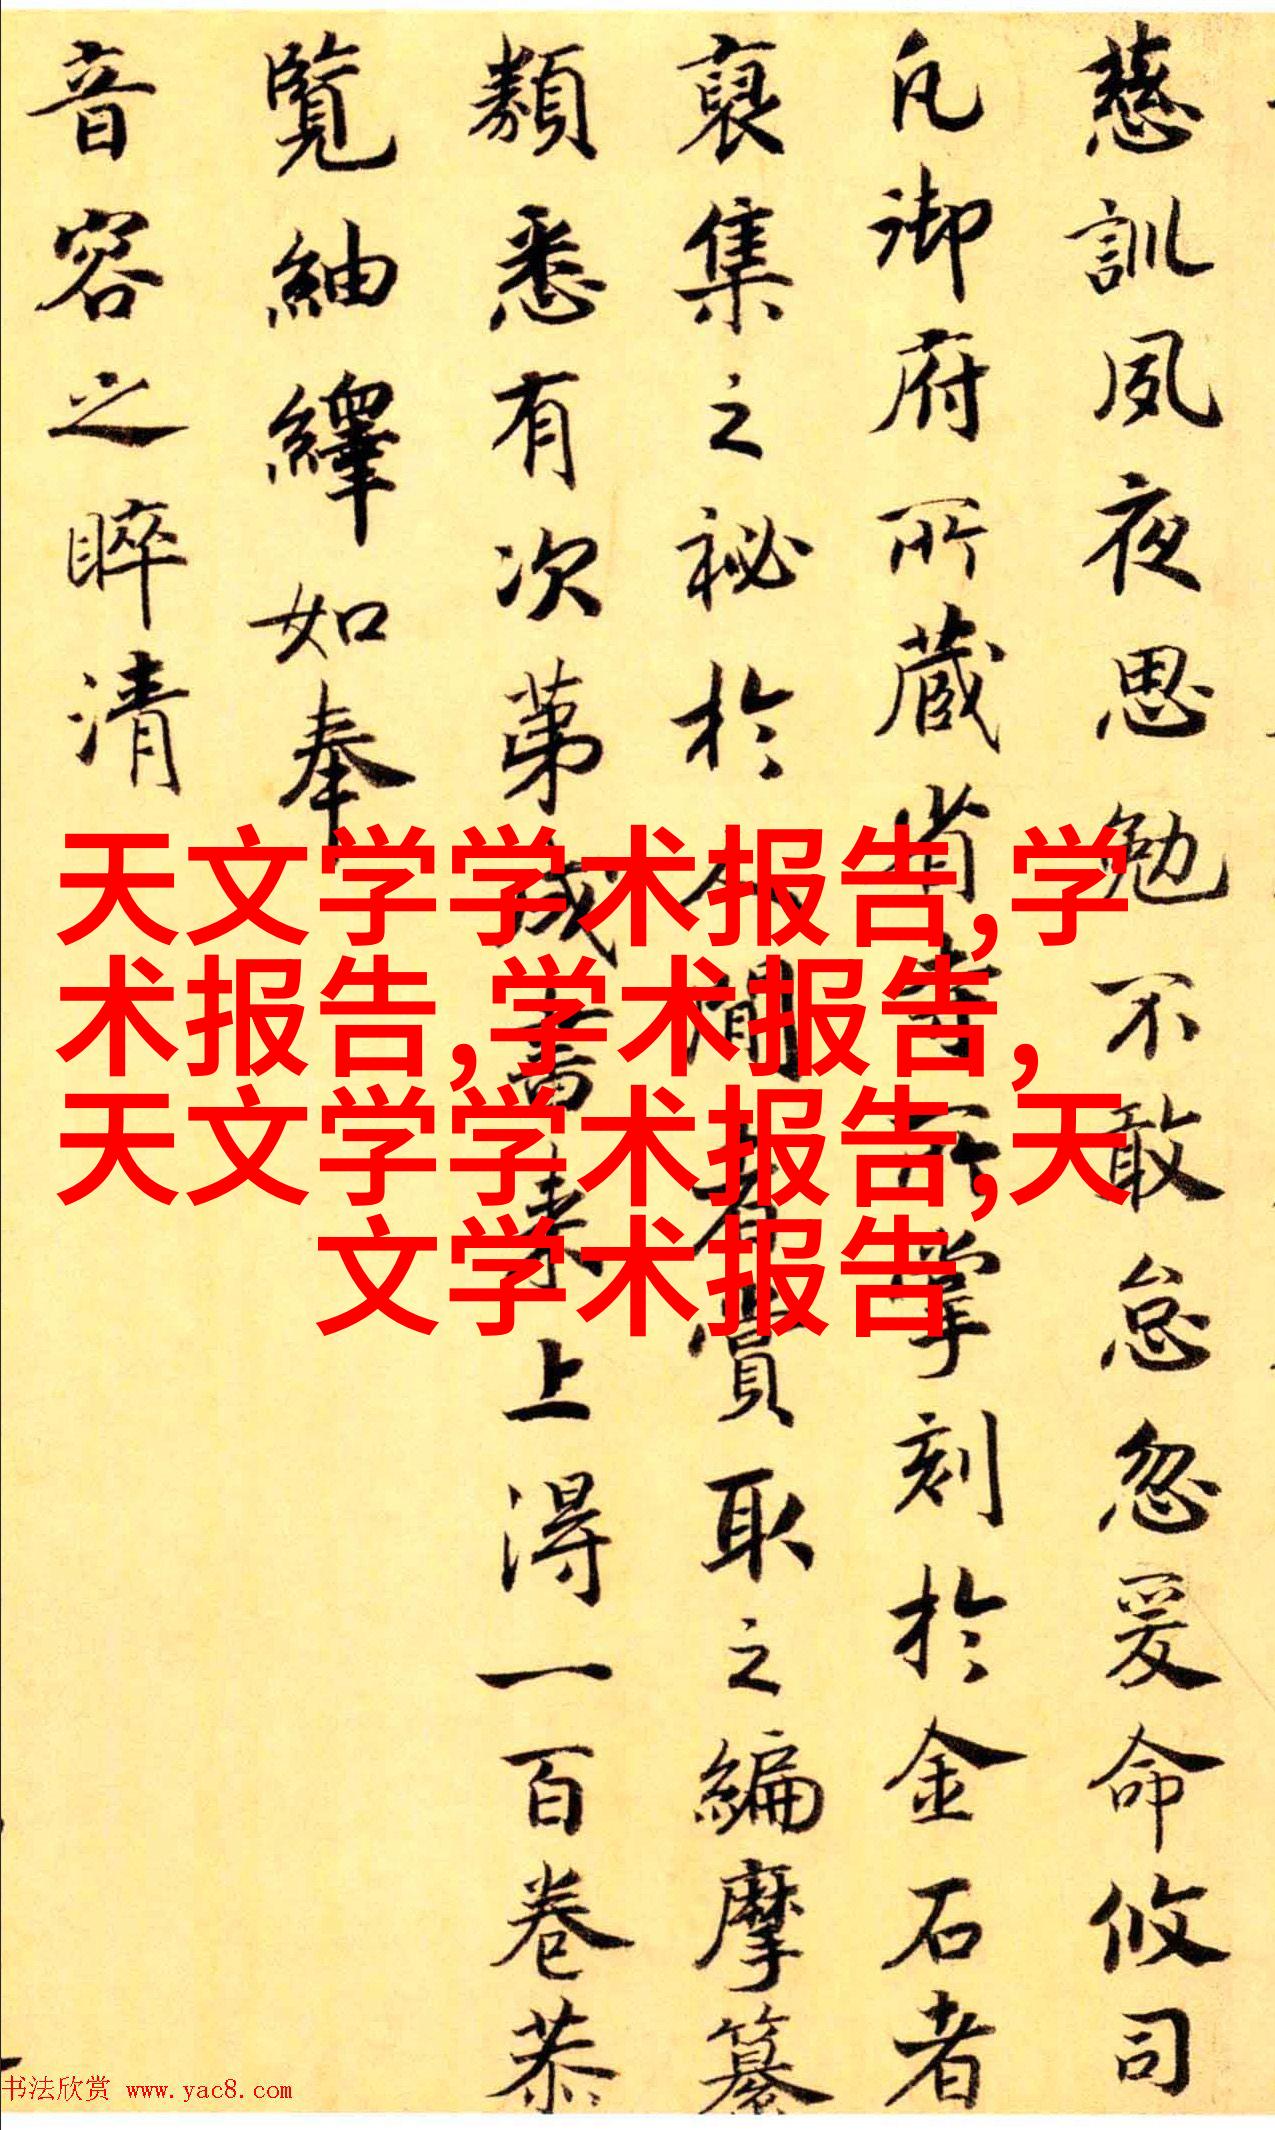 慈訓夙夜思勉不敢怠忽爰命攸司
凡御府所藏省寺所掌刻於金石者
裒集之秘於人間者賞取之編摩纂
類悉有次第成書來上得一百卷恭
覽紬繹如奉
音容之睟清
天文学学术报告,学
术报告,学术报告,
天文学学术报告,天
文学术报告
书法欣赏 www.yac8.com